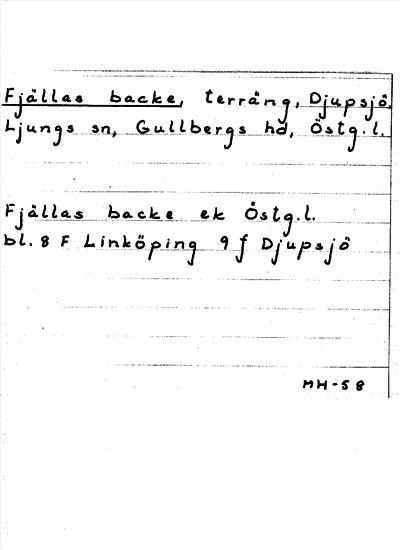 Fjällas backe, terräng, Djupsjö,
Ljungs sn, Gullbergs hd, Östg.l.
Fjällas backe ek Östg.l.
bl. 8 F Linköping 9 f Djupsjö
MH-58